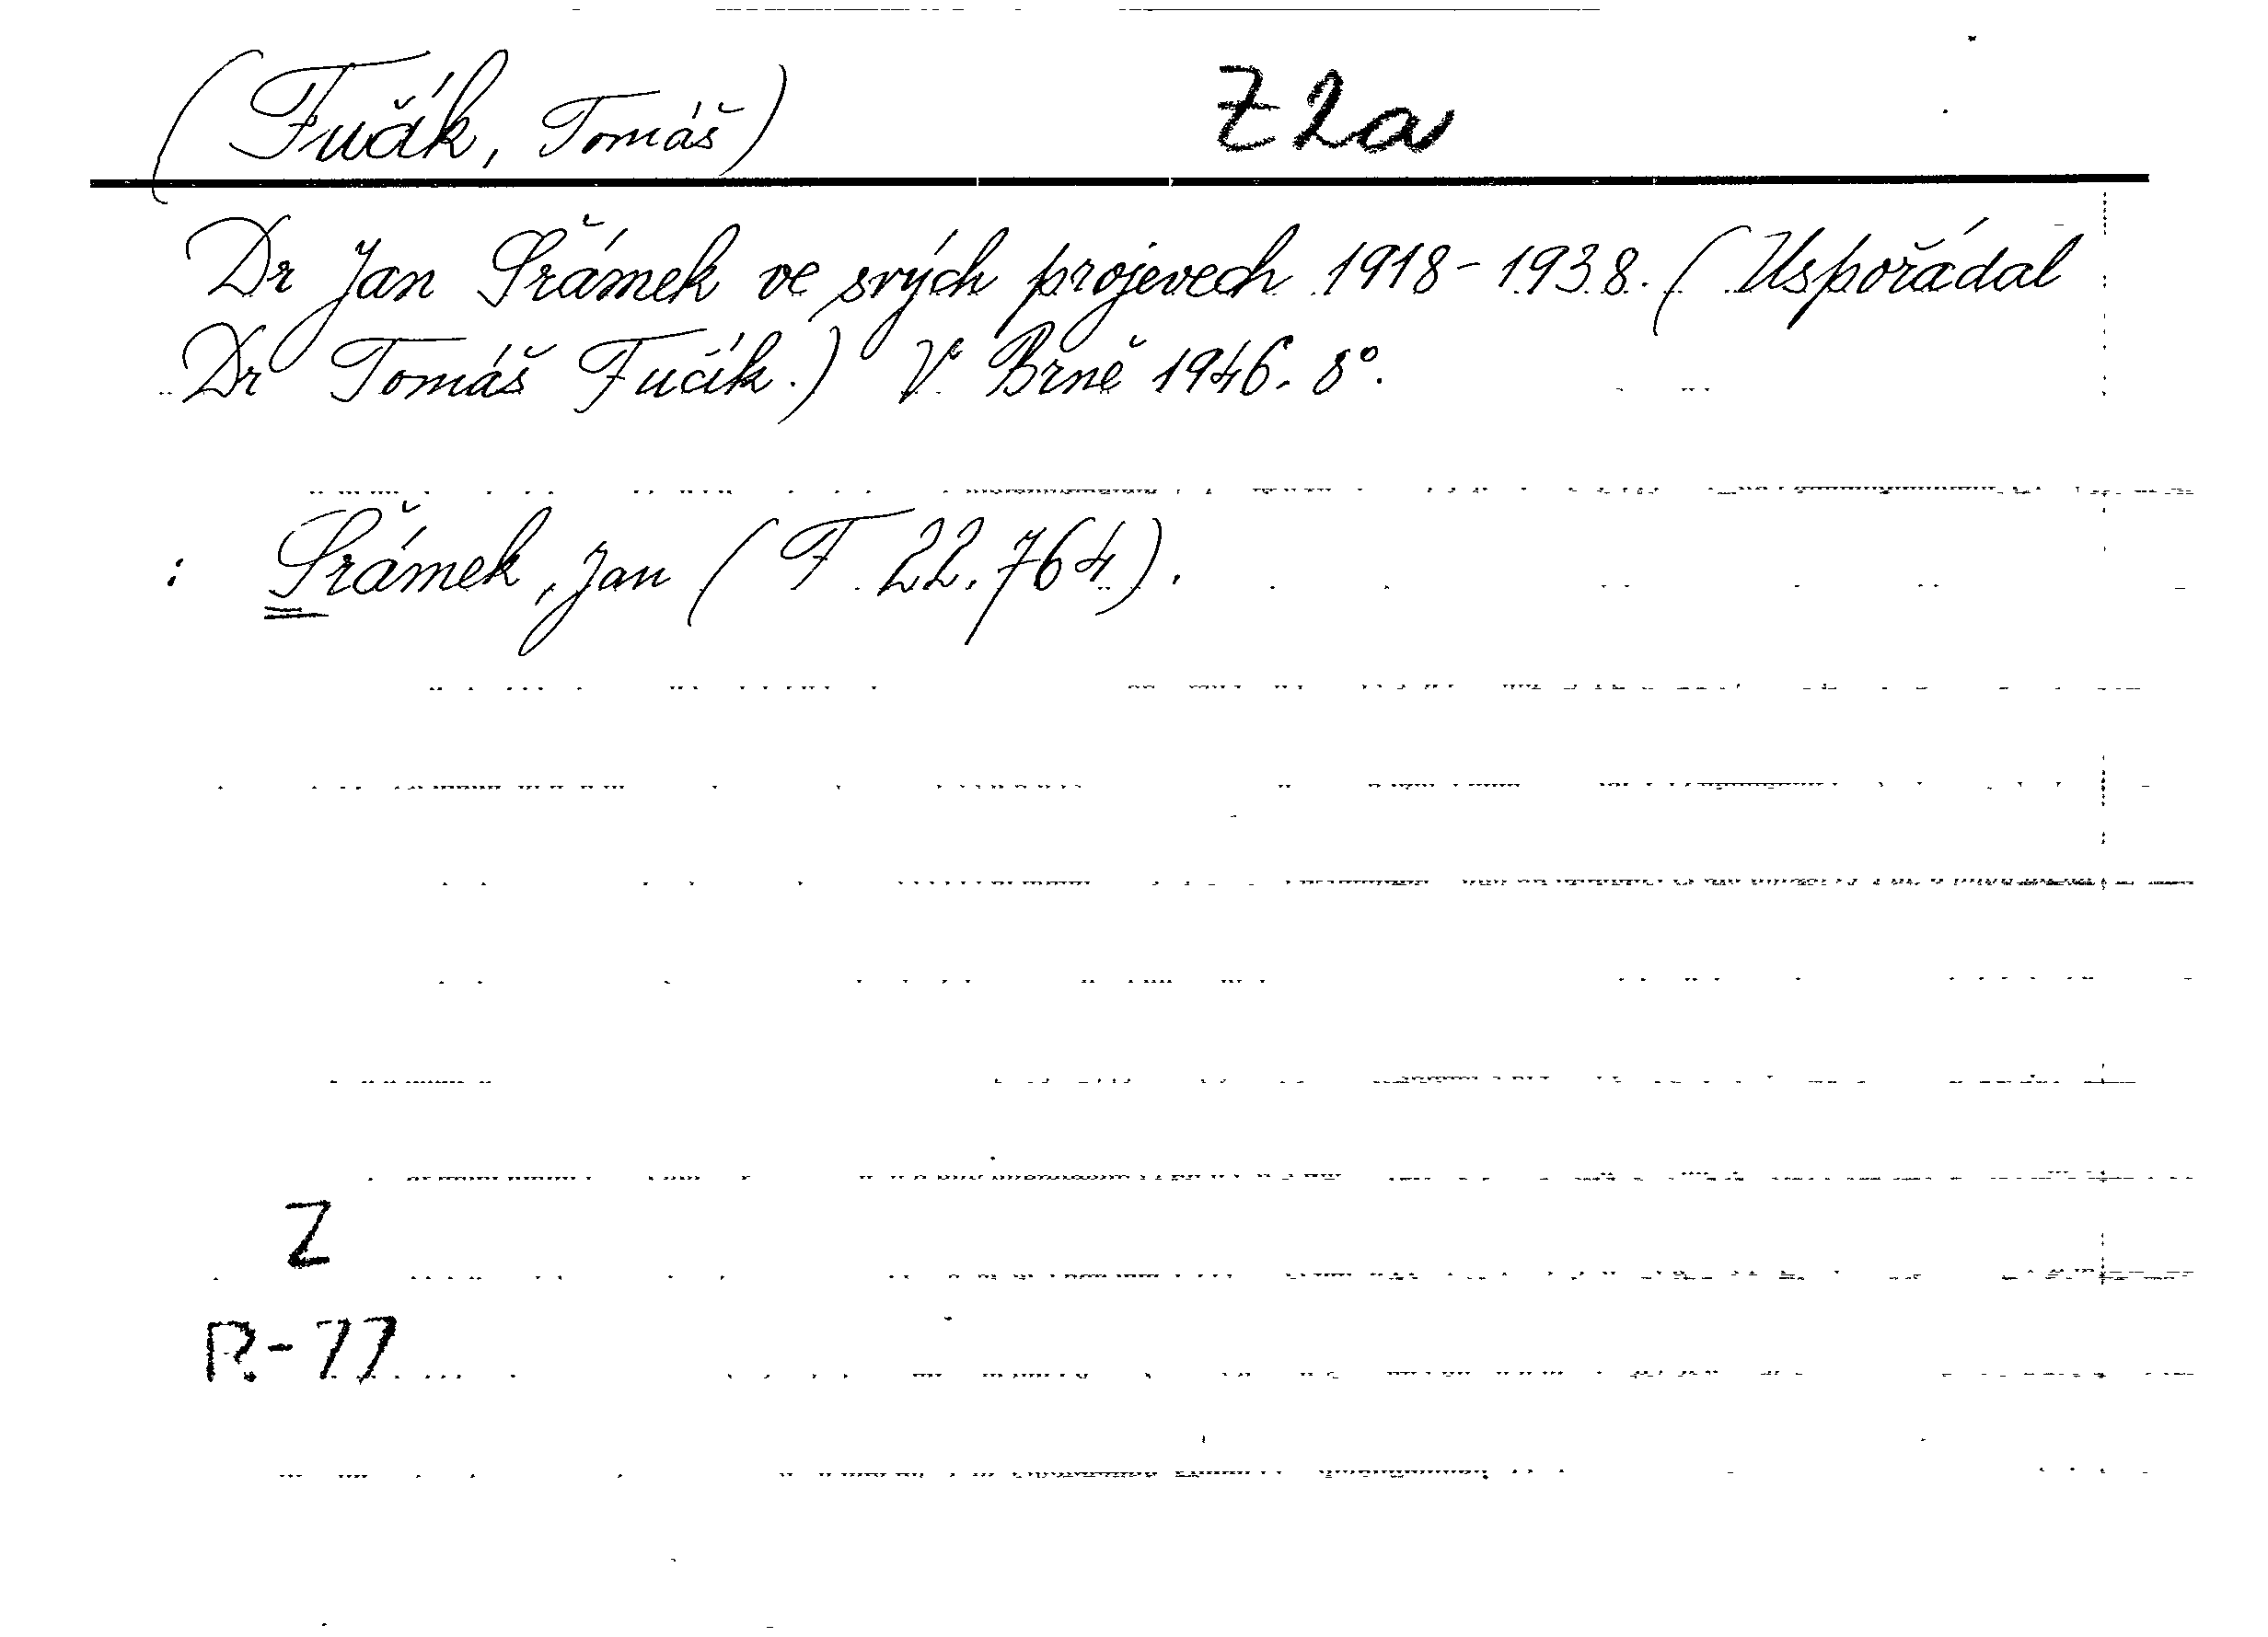 (Fučák, Tomáš) Z2a
Dr Jan Šrámek ve svých projevech 1918-1938. (Uspořádal
Dr Tomáš Fučík.) V Brně 1946. 8°.
: Šrámek, Jan (F 22.764).
Z
R-77